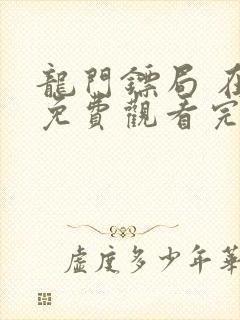 龍門鏢局 在
免費觀看完
虛度多少年華